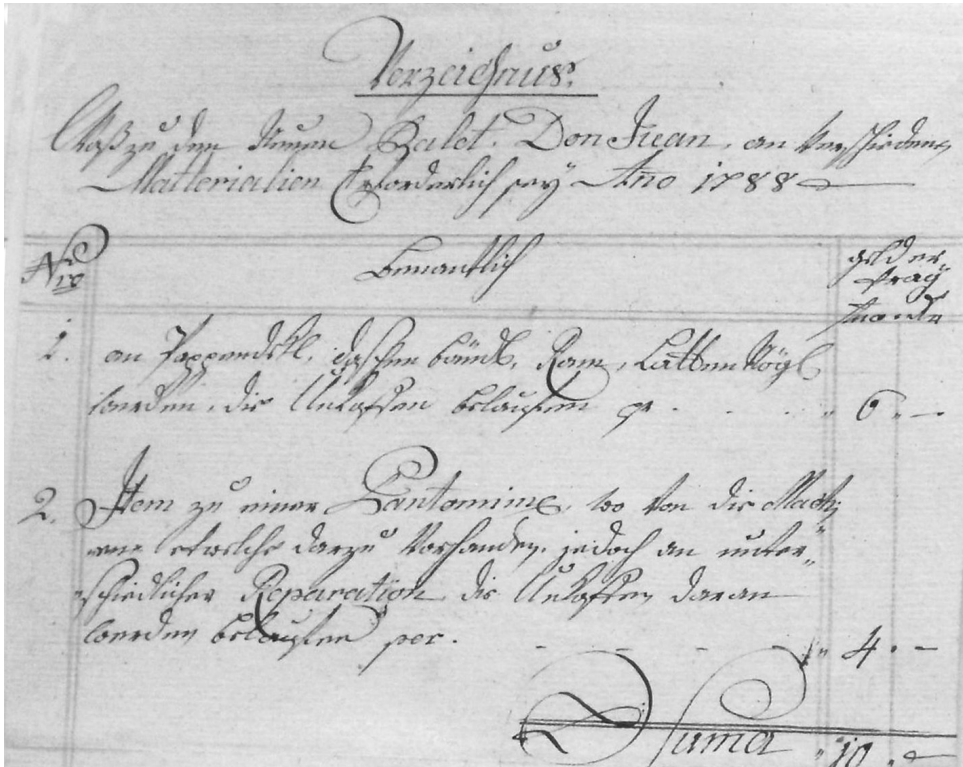 Verzeichnus.
Waß zu dem Neuen Balet. Don Juan, an Verschidene
Matterialien Erforderlich sey Ano 1788
Nro
Benantlich
geld er
trag
1. an Pappendekl, Ram, Latten Nögl
werden, die Unkosten belaufen 6 „ —
2. Item zu einer Pantomime, wo von die Machi
ene etwelche darzu Vorhanden, jedoch an unter„
schiedlicher Reparation die Unkosten daran
werden belaufen per. „ 4 . —
Suma „ 10 . —